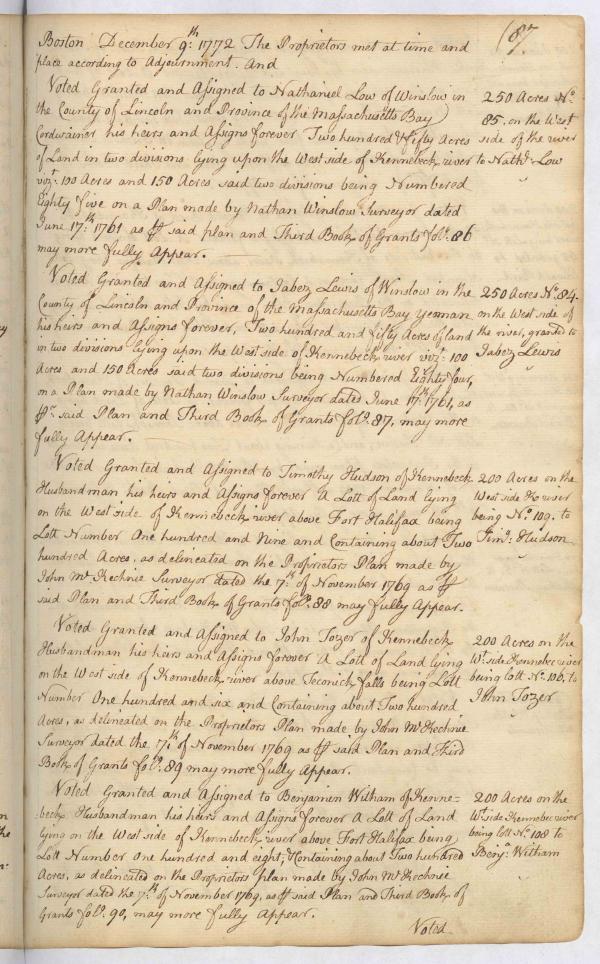 (87.
Boston December 9th. 1772 The Proprietors met at time and
place according to Adjournment. And
Voted Granted and Assigned to Nathaniel Low of Winslow in
the County of Lincoln and Province of the Massachusetts Bay
Cordwainer his heirs and Assigns forever Two hundred & fifty Acres
of Land in two divisions lying upon the West side of Kennebeck river
vizt. 100 Acres and 150 Acres, said two divisions being Numbered
Eighty five on a Plan made by Nathan Winslow Surveyor dated
June 17th. 1761 as ℔ said plan and Third Book of Grants folo. 86
may more fully Appear.
250 Acres No.
85. on the West
side of the river
to Nathl. Low
Voted Granted and Assigned to Jabez Lewis of Winslow in the
County of Lincoln and Province of the Massachusetts Bay yeoman
his heirs and Assigns forever, Two hundred and fifty Acres of land
in two divisions lying upon the West side of Kennebeck river vizt. 100
Acres and 150 Acres said two divisions being Numbered Eighty four,
on a Plan made by Nathan Winslow Surveyor dated June 17th. 1761, as
℔r. said Plan and Third Book of Grants folo. 87, may more
fully Appear.
250 Acres No. 84.
on the West side of
the river, granted to
Jabez Lewis
Voted Granted and Assigned to Timothy Hudson of Kennebeck
Husbandman his heirs and Assigns forever A Lott of Land lying
on the West side of Kennebeck river above Fort Halifax being
Lott Number One hundred and Nine and Containing about Two
hundred Acres, as delineated on the Proprietors Plan made by
John McKechnie Surveyor dated the 7th. of November 1769 as ℔
said Plan and Third Book of Grants folo. 88 may fully Appear.
200 Acres on the
West side K. river
being No. 109. to
Timo. Hudson
Voted Granted and Assigned to John Tozer of Kennebeck
Husbandman his heirs and Assigns forever A Lott of Land lying
on the West side of Kennebeck river above Teconick falls being Lott
Number One hundred and six and Containing about Two hundred
Acres, as delineated on the Proprietors Plan made by John McKechnie
Surveyor dated the 7th. of November 1769 as ℔ said Plan and Third
Book of Grants folo. 89 may more fully Appear.
200 Acres on the
Wt. side Kennebec river
being lott No. 106. to
John Tozer
Voted Granted and Assigned to Benjamin Witham of Kenne-
beck Husbandman his heirs and Assigns forever A Lott of Land
lying on the West side of Kennebeck river above Fort Halifax being
Lott Number One hundred and eight, & Containing about Two hundred
Acres, as delineated on the Proprietors plan made by John McKechnie
Surveyor dated the 7th. of November 1769, as ℔ said Plan and Third Book of
Grants folo. 90, may more fully Appear.
200 Acres on the
Wt. side Kennebec river
being lott No. 108 to
Benja. Witham
Voted